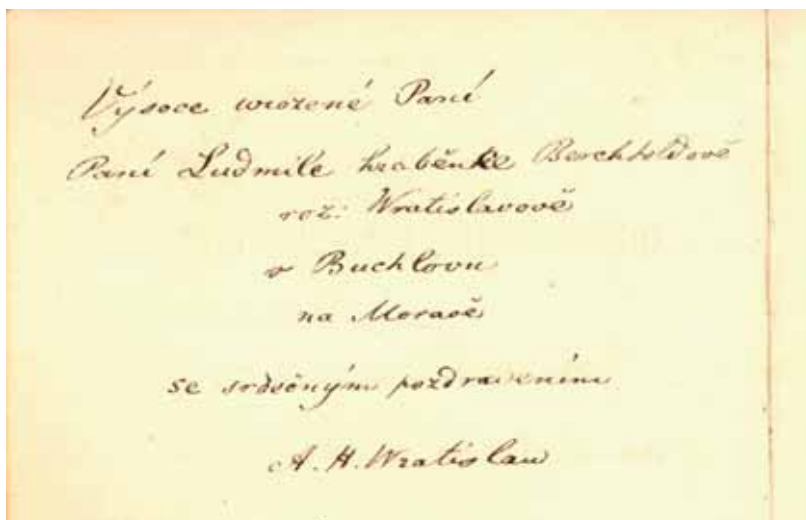 Výsoce urozené Paní
Paní Ludmile hraběnke Berchtoldově
roz: Wratislavově
v Buchlovu
na Moravě
se srdečným pozdravením
A. H. Wratislaw